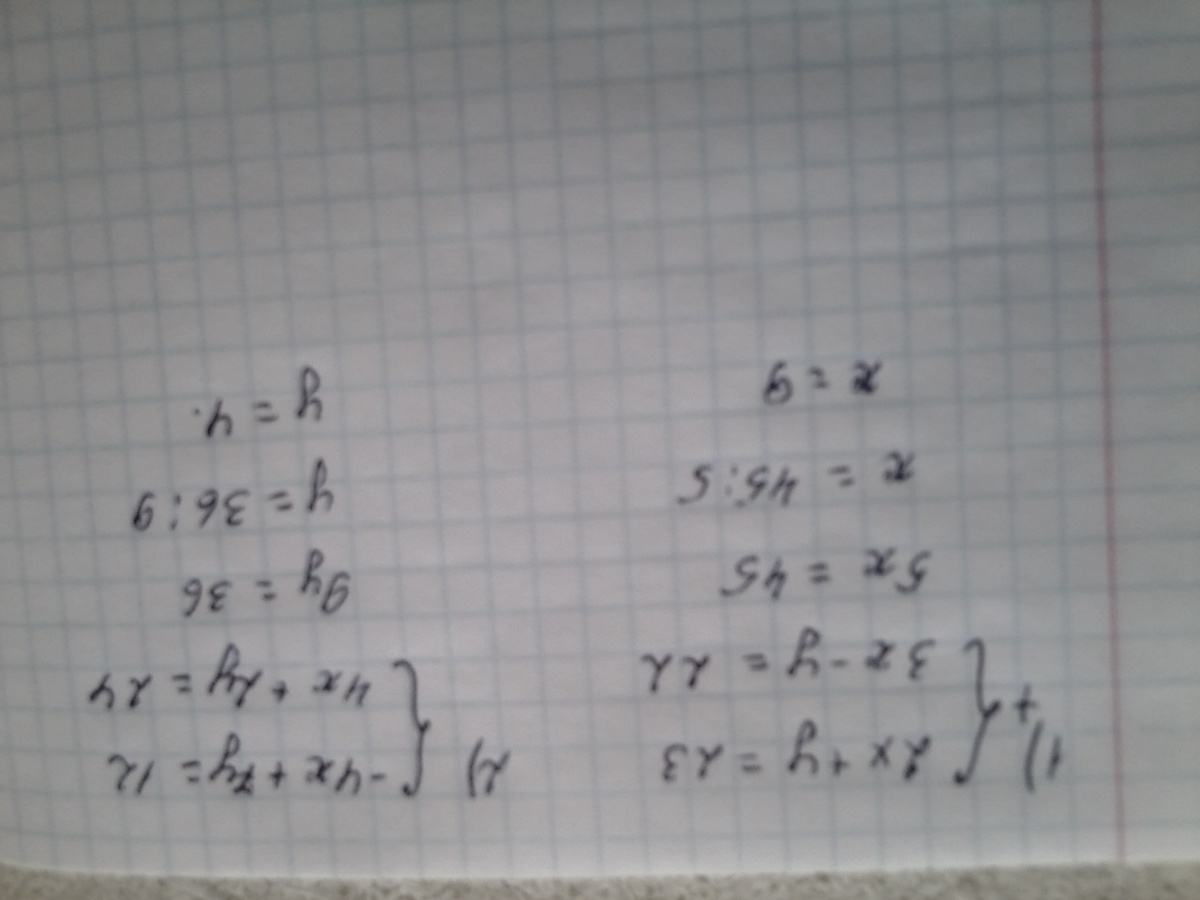 1) + { 2x + y = 23
3x - y = 22
5x = 45
x = 45:5
x = 9
2) { -4x + 7y = 12
4x + 2y = 24
9y = 36
y = 36:9
y = 4.